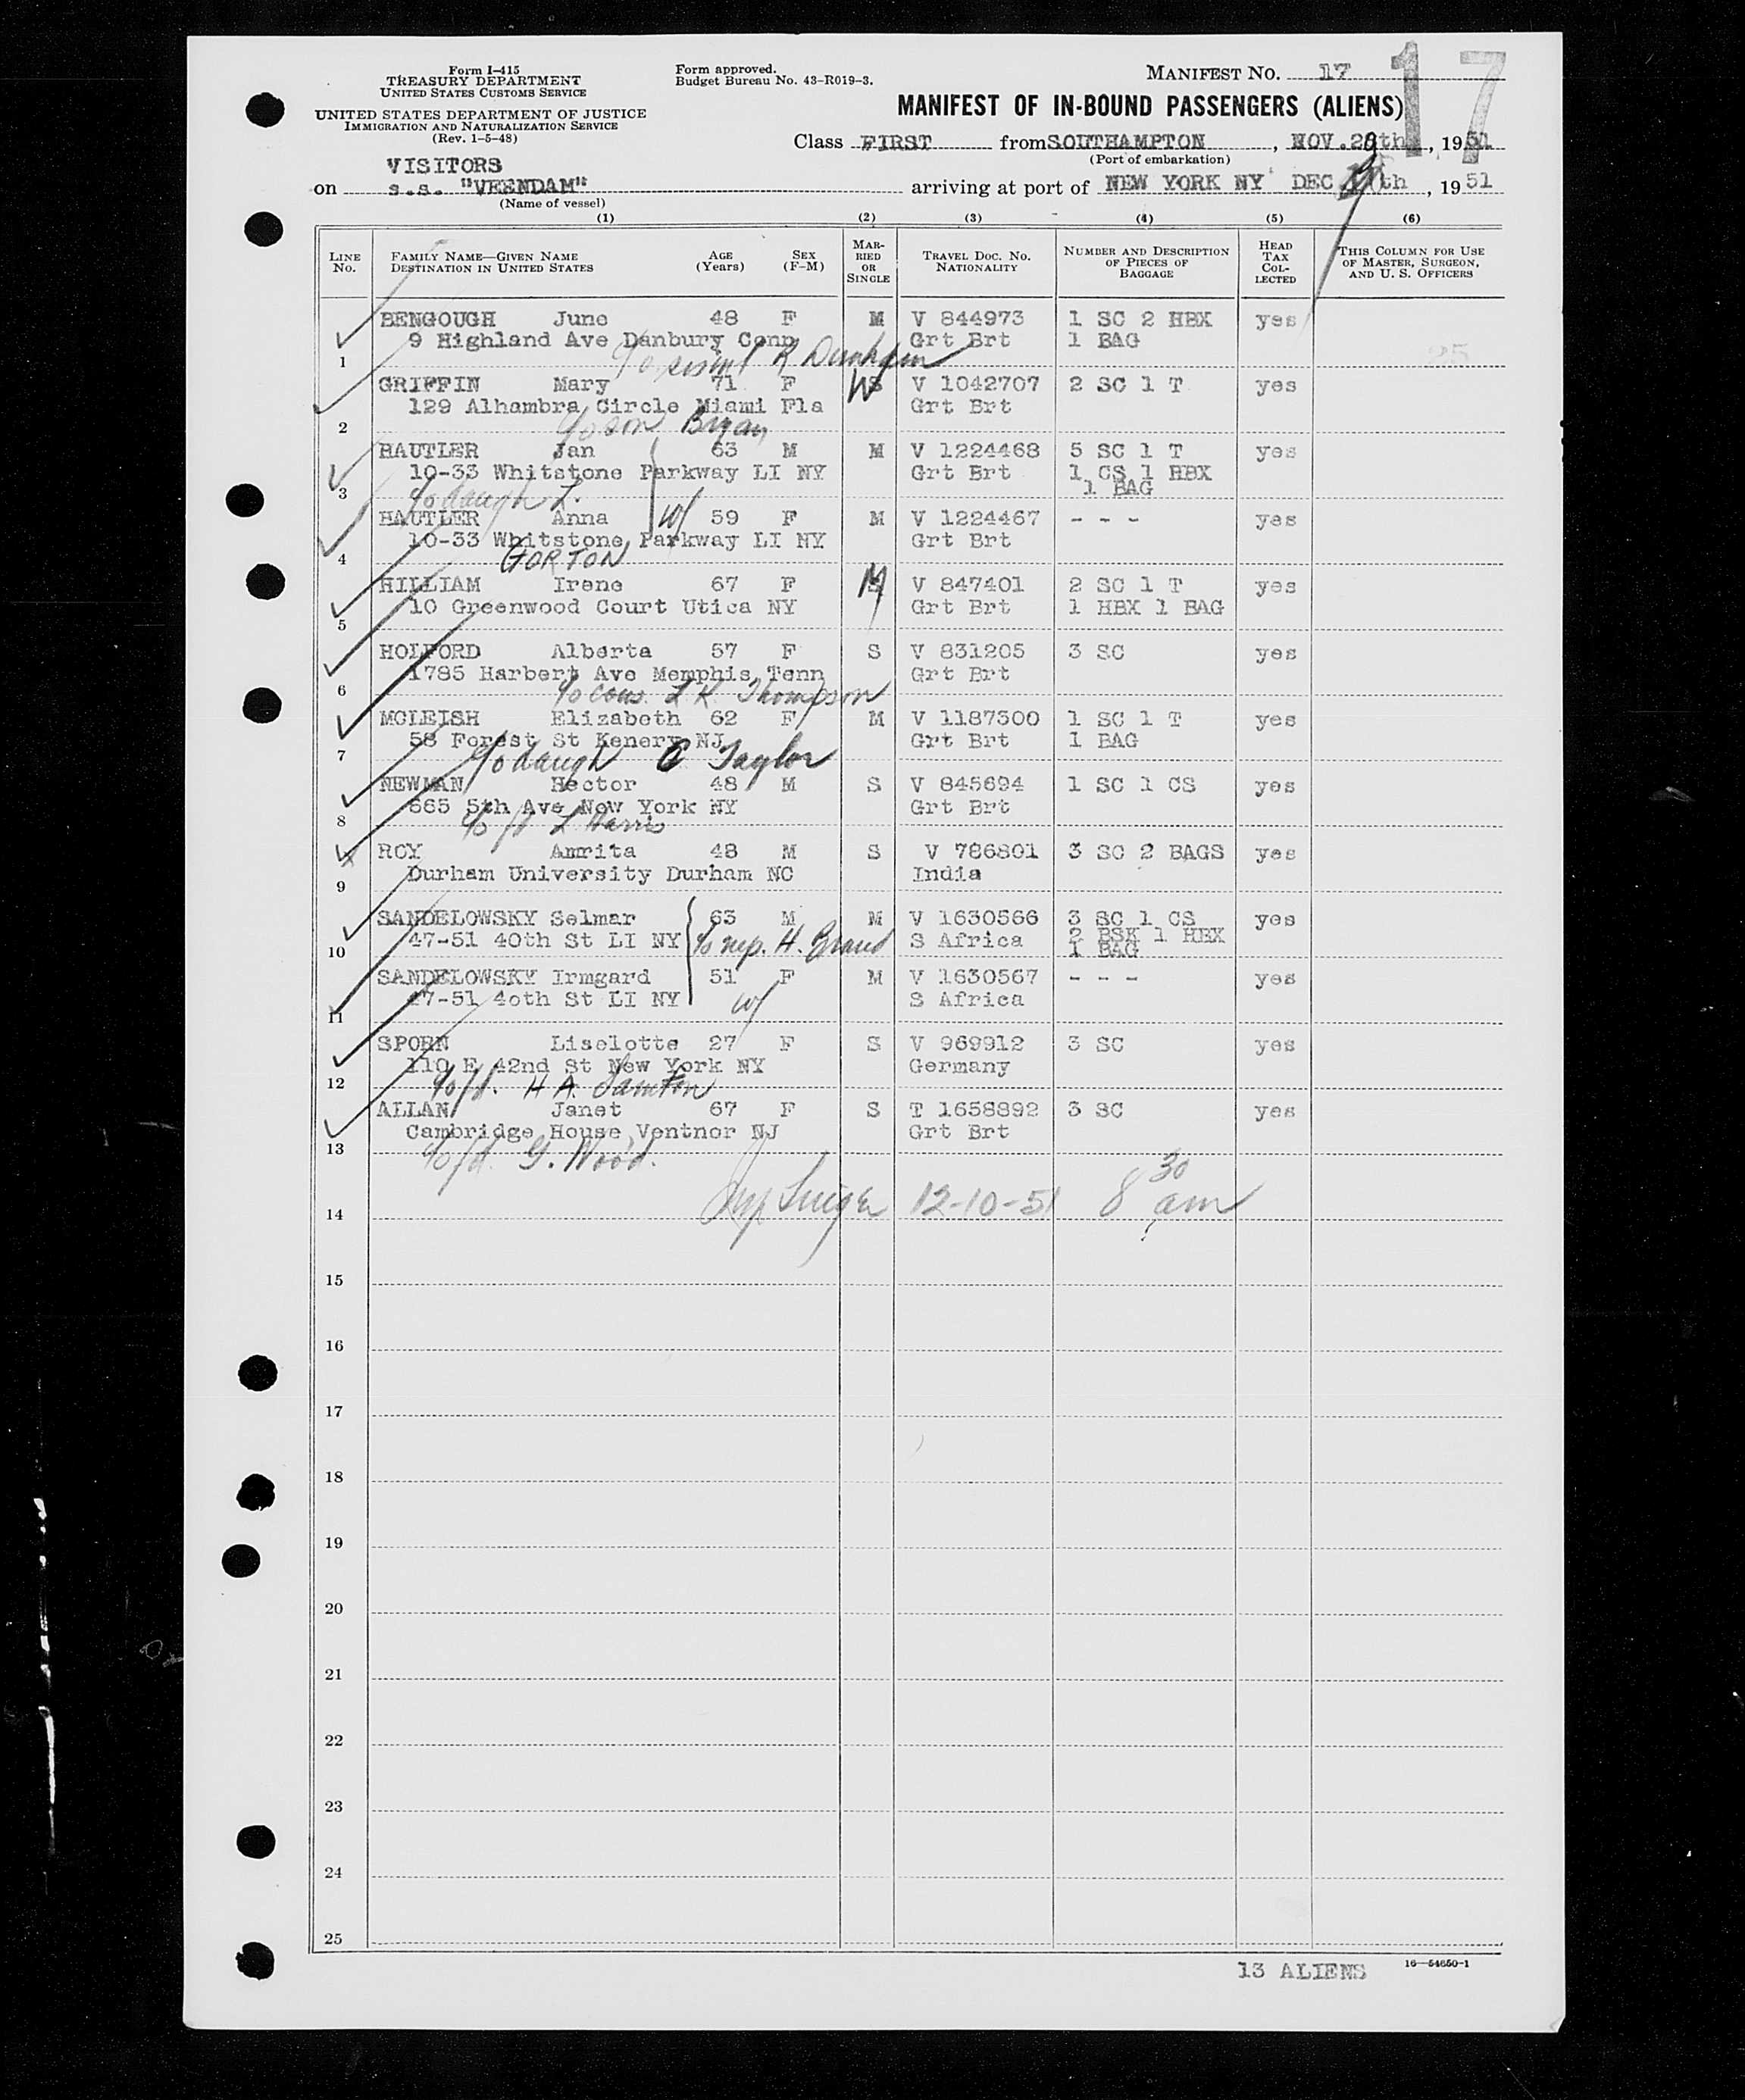 Form I-415
TREASURY DEPARTMENT
UNITED STATES CUSTOMS SERVICE
UNITED STATES DEPARTMENT OF JUSTICE
IMMIGRATION AND NATURALIZATION SERVICE
(Rev. 1-5-48)
Form approved.
Budget Bureau No. 43-R019-3.
MANIFEST NO. 17
17
MANIFEST OF IN-BOUND PASSENGERS (ALIENS)
Class FIRST from SOUTHAMPTON, NOV.29th, 1951
(Port of embarkation)
VISITORS
on s.s. "VEENDAM" arriving at port of NEW YORK NY DEC th, 1951
(Name of vessel)
(1) (2) (3) (4) (5) (6)
LINE No. FAMILY NAME—GIVEN NAME DESTINATION IN UNITED STATES AGE (Years) SEX (F-M) MARRIED OR SINGLE TRAVEL DOC. NO. NATIONALITY NUMBER AND DESCRIPTION OF PIECES OF BAGGAGE HEAD TAX COLLECTED THIS COLUMN FOR USE OF MASTER, SURGEON, AND U. S. OFFICERS
BENGOUGH June 48 F M V 844973 1 SC 2 HBX yes
9 Highland Ave Danbury Conn Grt Brt 1 BAG
1 c/o R Dunham 25
GRIFFIN Mary 71 F W V 1042707 2 SC 1 T yes
129 Alhambra Circle Miami Fla Grt Brt
2 c/o son Bryan
HAUTLER Jan 63 M M V 1224468 5 SC 1 T yes
10-33 Whitstone Parkway LI NY Grt Brt 1 CS 1 HBX
3 c/o daugh L. 1 BAG
HAUTLER Anna w/ 59 F M V 1224467 - - - yes
10-33 Whitstone Parkway LI NY Grt Brt
4 GORTON
HILLIAM Irene 67 F M V 847401 2 SC 1 T yes
10 Greenwood Court Utica NY Grt Brt 1 HBX 1 BAG
5
HOLFORD Alberta 57 F S V 831205 3 SC yes
1785 Harbert Ave Memphis Tenn Grt Brt
6 c/o cous. L K Thompson
MCLEISH Elizabeth 62 F M V 1187300 1 SC 1 T yes
58 Forest St Kenery NJ Grt Brt 1 BAG
7 c/o daugh C Taylor
NEWMAN Hector 48 M S V 845694 1 SC 1 CS yes
665 5th Ave New York NY Grt Brt
8 c/o fd L Harris
ROY Amrita 48 M S V 786801 3 SC 2 BAGS yes
Durham University Durham NC India
9
SANDELOWSKY Selmar 63 M M V 1630566 3 SC 1 CS yes
47-51 40th St LI NY c/o nep. H. S Africa 2 BSK 1 HBX
10 1 BAG
SANDELOWSKY Irmgard 51 F M V 1630567 - - - yes
47-51 4oth St LI NY w/ S Africa
11
SPORN Liselotte 27 F S V 969912 3 SC yes
110 E 42nd St New York NY Germany
12 c/o fd. H A. Samton
ALLAN Janet 67 F S T 1658892 3 SC yes
Cambridge House Ventnor NJ Grt Brt
13 c/o fd. G. Wood.
14 12-10-51 8 30 am
15
16
17
18
19
20
21
22
23
24
25
13 ALIENS 16—54650-1